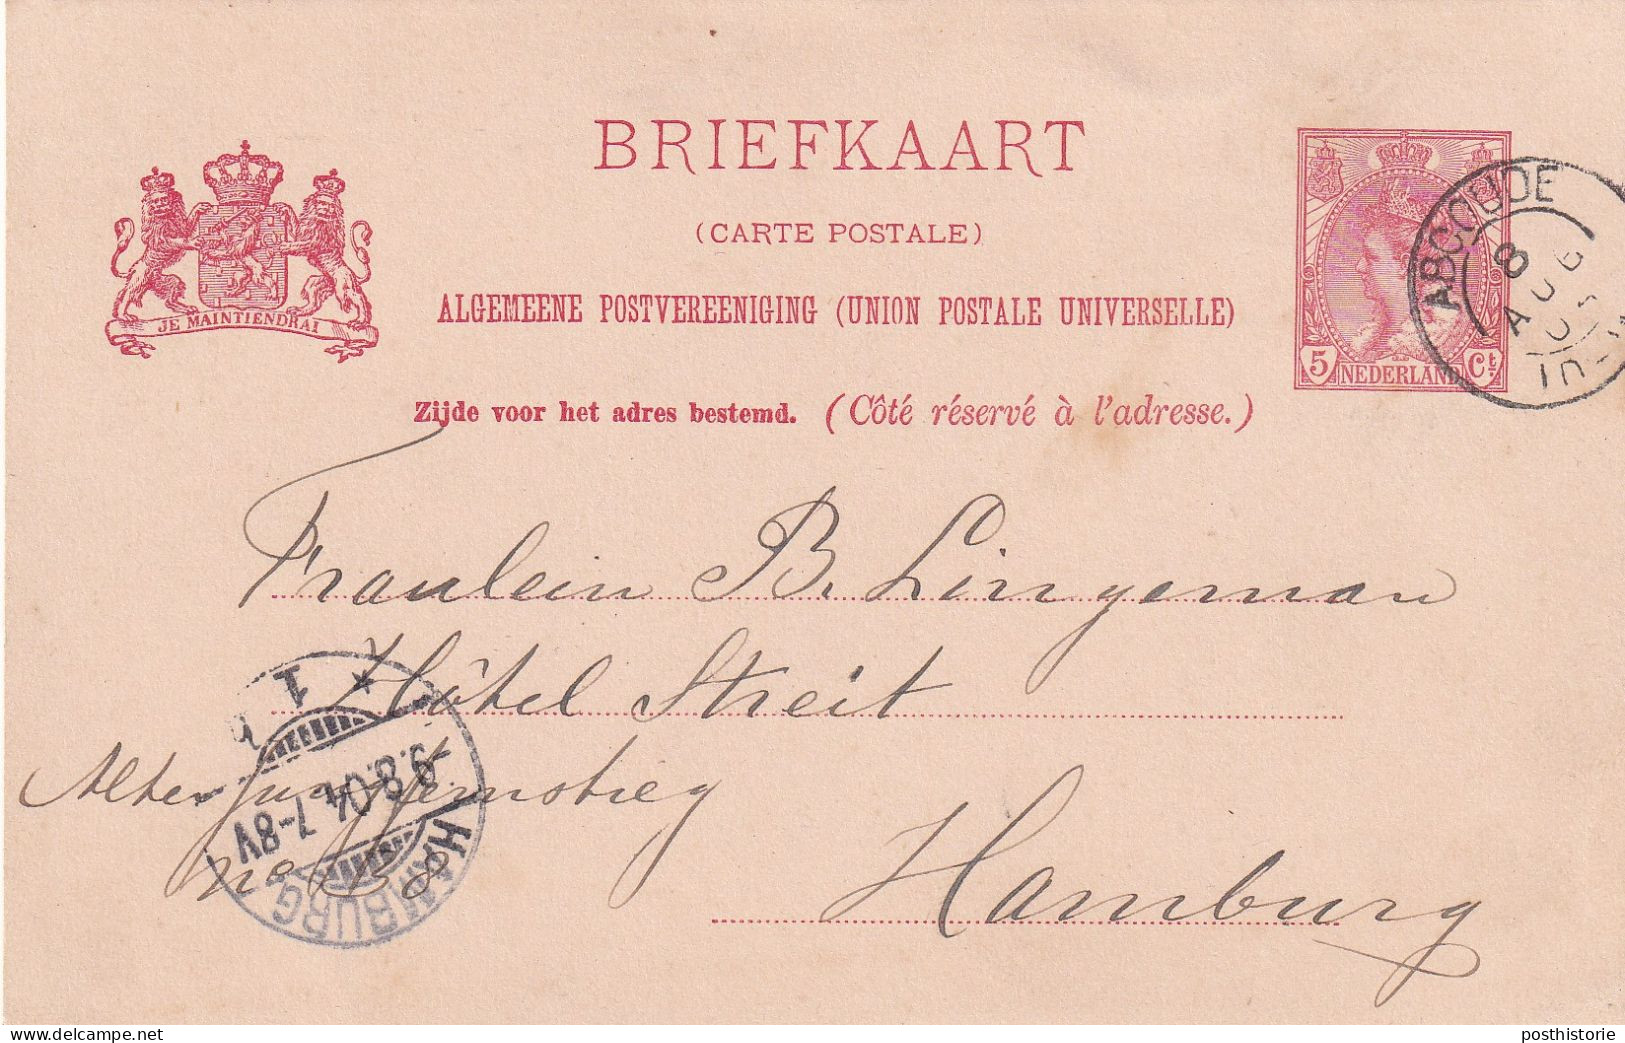 BRIEFKAART
(CARTE POSTALE)
ALGEMEENE POSTVEREENIGING (UNION POSTALE UNIVERSELLE)
Zijde voor het adres bestemd. (Côté réservé à l'adresse.)
JE MAINTIENDRAI
5 NEDERLAND Ct.
ABCOUDE
8 AUG
Fraulein B. Lingeman
Hôtel Streit
Alter Jungfernstieg
no
Hamburg
HAMBURG
9.8.04. 7-8V
* 1
delcampe.net
posthistorie